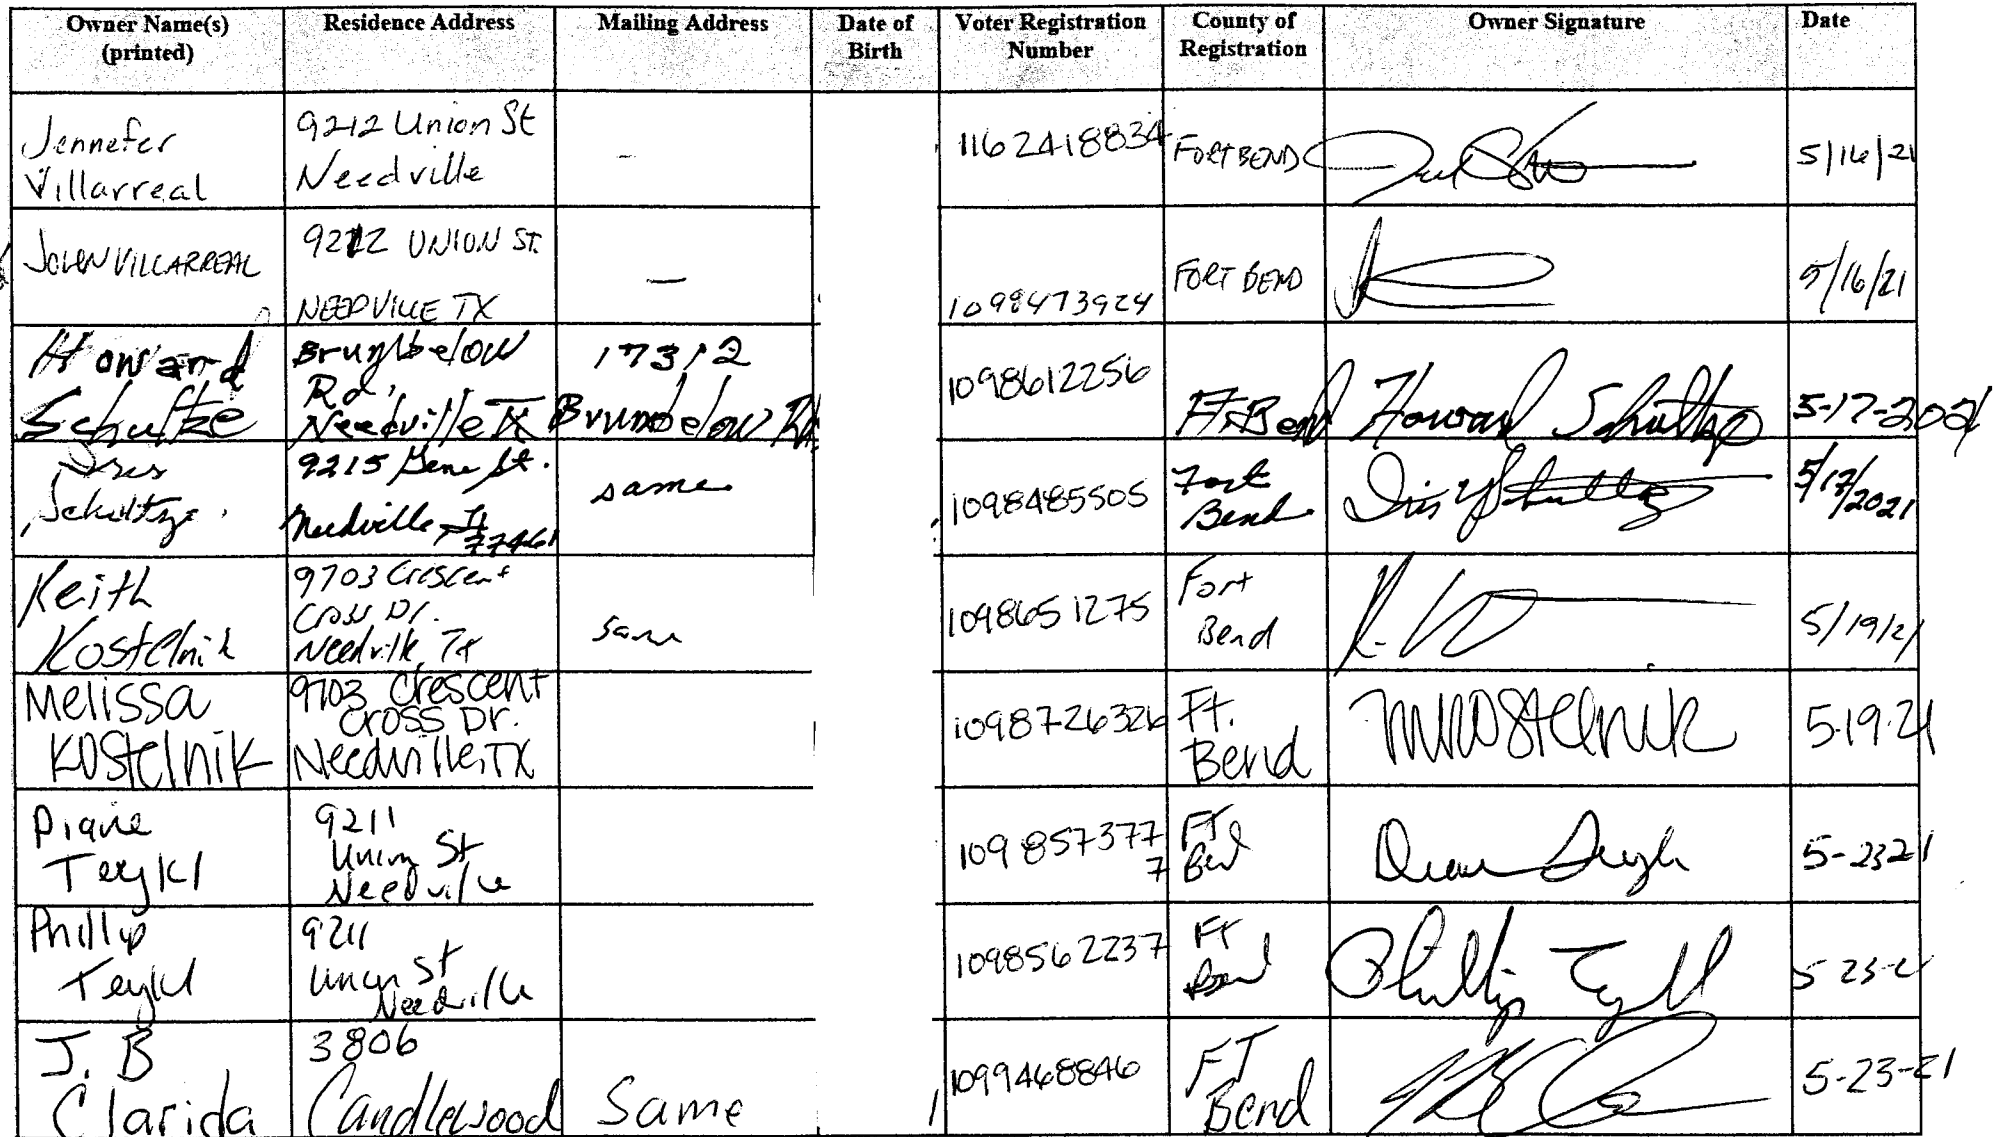 Owner Name(s) (printed) Residence Address Mailing Address Date of Birth Voter Registration Number County of Registration Owner Signature Date
Jennefer Villarreal 9212 Union St Needville - 1162418834 FORT BEND 5/16/21
JOHN VILLARREAL 9212 UNION ST. NEEDVILLE TX — 1098473924 FORT BEND 5/16/21
Howard Schultze Rd, Needville TX 17312 1098612256 Ft. Bend Howard Schultze 5-17-2021
Iris Schultze 9215 Gene St. Needville Tx 77461 same 1098485505 Fort Bend Iris Schultze 5/17/2021
Keith Kostelnik 9703 Crescent Cross Dr. Needville, TX same 1098651275 Fort Bend 5/19/21
Melissa Kostelnik 9703 Crescent Cross Dr. Needville, TX 1098726326 Ft. Bend MKostelnik 5.19.21
Diane Teykl 9211 Union St Needville 1098573777 FT Bend Diane Teykl 5-23 21
Phillip Teykl 9211 Union St Needville 1098562237 FT Bend Phillip Teykl 5 23-21
J. B Clarida 3806 Candlewood Same 1099468846 FT Bend 5-23-21